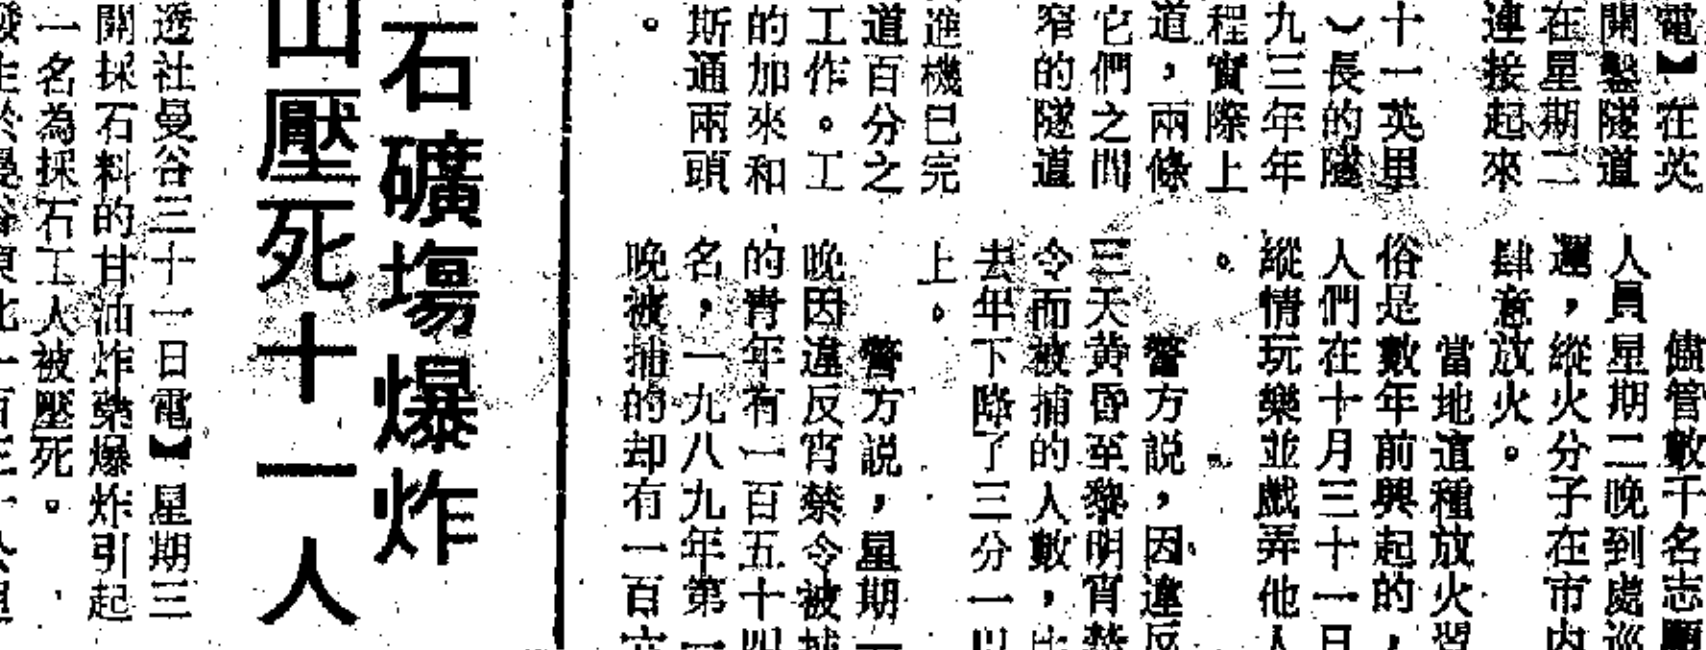 電】在英
開鑿隧道
在星期二
連接起來
十一英里
)長的隧
九三年年
程實際上
道,兩條
它們之間
窄的隧道
進機已完
道百分之
工作。工
的加來和
斯通兩頭
。
儘管數千名志願
人員星期二晚到處巡
邏,縱火分子在市內
肆意放火。
當地這種放火習
俗是數年前興起的,
人們在十月三十一日
縱情玩樂並戲弄他人
。
警方説,因違反
三天黄昏至黎明宵禁
令而被捕的人數,比
去年下降了三分一以
上。
警方説,星期一
晚因違反宵禁令被捕
的青年有一百五十四
名,一九八九年第一
晚被捕的却有一百六
石礦塲爆炸
山壓死十一人
透社曼谷三十一日電】星期三
開採石料的甘油炸藥爆炸引起
一名為採石工人被壓死。
發生於曼谷東北一百三十公里